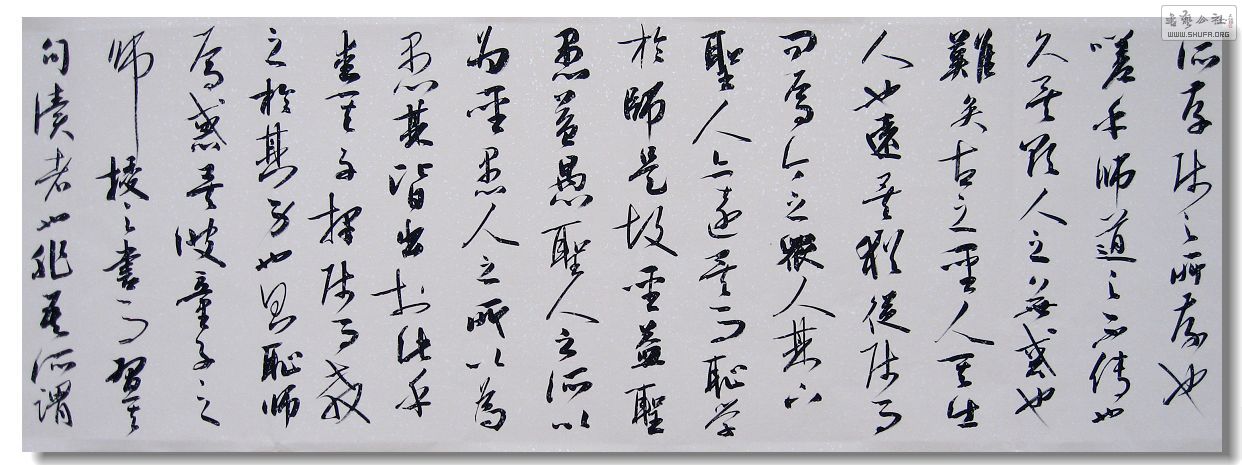 所存師之所存也
嗟乎師道之不傳也
久矣欲人之無惑也
難矣古之聖人其出
人也遠矣猶從師而
問焉今之眾人其下
聖人亦遠矣而恥學
於師是故聖益聖
愚益愚聖人之所以
為聖愚人之所以為
愚其皆出於此乎
愛其子擇師而教
之於其身也則恥師
焉惑矣彼童子之
師授之書而習其
句讀者也非吾所謂
WWW.SHUFA.ORG